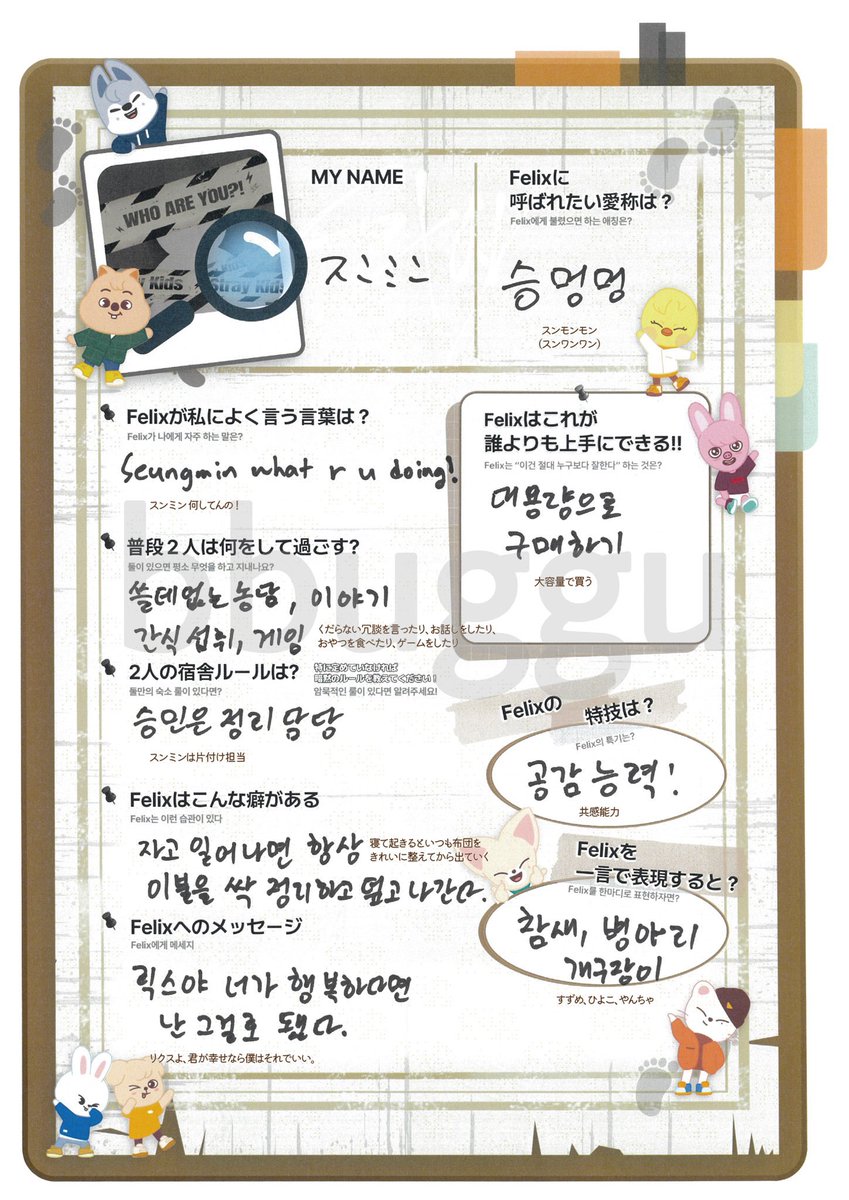 WHO ARE YOU?!
Kids
Stray Kids
MY NAME
スンミン
Felixに
呼ばれたい愛称は？
Felix에게 불렸으면 하는 애칭은?
승멍멍
スンモンモン
(スンワンワン)
Felixが私によく言う言葉は？
Felix가 나에게 자주 하는 말은?
Seungmin what r u doing!
スンミン何してんの！
Felixはこれが
誰よりも上手にできる!!
Felix는 “이건 절대 누구보다 잘한다” 하는 것은?
대용량으로
구매하기
大容量で買う
普段２人は何をして過ごす?
둘이 있으면 평소 무엇을 하고 지내나요?
쓸데없는 농담, 이야기
간식 섭취, 게임
くだらない冗談を言ったり、お話しをしたり、
おやつを食べたり、ゲームをしたり
2人の宿舎ルールは?
特に定めていなければ
暗黙のルールを教えてください！
둘만의 숙소 룰이 있다면?
암묵적인 룰이 있다면 알려주세요!
승민은 정리 담당
スンミンは片付け担当
Felixの特技は？
Felix의 특기는?
공감 능력!
共感能力
Felixはこんな癖がある
Felix는 이런 습관이 있다
자고 일어나면 항상
이불을 싹 정리하고 덮고 나간다.
寝て起きるといつも布団を
きれいに整えてから出ていく
Felixを
一言で表現すると？
Felix를 한마디로 표현하자면?
참새, 병아리
개구장이
すずめ、ひよこ、やんちゃ
Felixへのメッセージ
Felix에게 메세지
릭스야 너가 행복하다면
난 그걸로 됐다.
リクスよ、君が幸せなら僕はそれでいい。
bbuggu